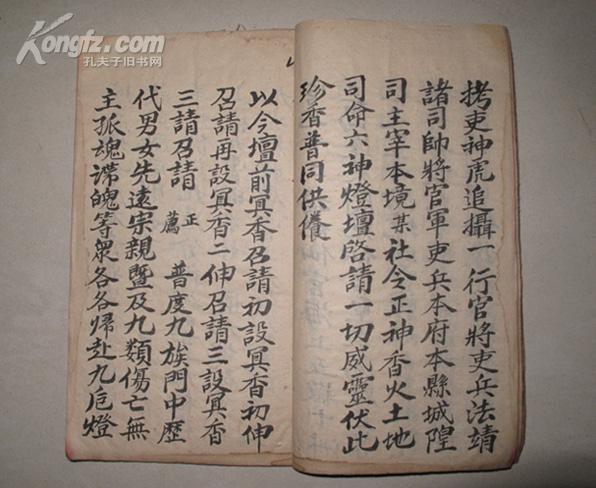 Kongfz.com
孔夫子旧书网
拷吏神虎追攝一行官將吏兵法靖
諸司帥將官軍吏兵本府本縣城隍
司主宰本境某社令正神香火土地
司命六神燈壇啓請一切威靈伏此
珍香普同供儀
以今壇前冥香召請初設冥香初伸
召請再設冥香二伸召請三設冥香
三請召請正薦普度九族門中歷
代男女先遠宗親暨及九類傷亡無
主孤魂滯魄等衆各各歸赴九巵燈